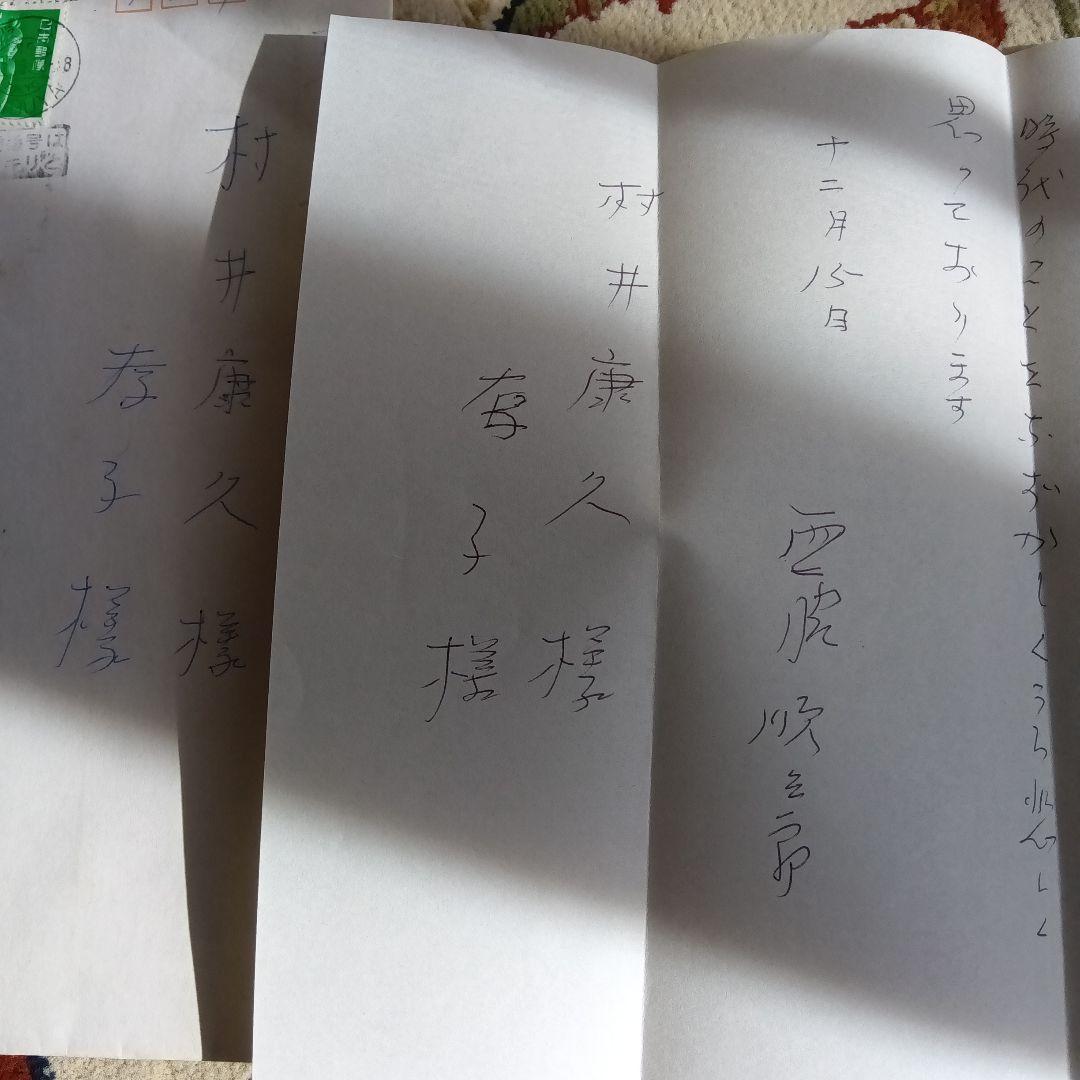 時代のことをなおなつかしくうら悲しく
思っております
十二月15日
西脇順三郎
村井康久様
孝子様
村井康久様
孝子様
日本郵便